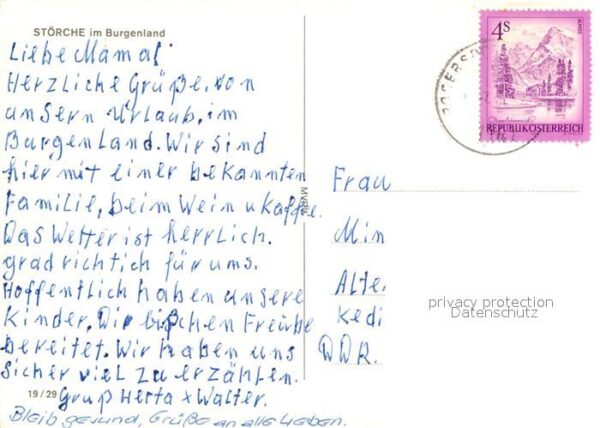 STÖRCHE im Burgenland
Liebe Mama!
Herzliche Grüße. von
unsern Urlaub, im
Burgenland. Wir sind
hier mit einer bekannten
Familie, beim Wein u Kaffe.
Das Wetter ist herrlich.
grad richtich für ums.
Hoffentlich haben unsere
Kinder, Dir bißchen Freude
bereitet. Wir haben uns
sicher viel zu erzählen.
Gruß Herta + Walter.
Bleib gesund, Grüße an alle Lieben.
19/29
4S
REPUBLIK ÖSTERREICH
Frau
Min
Alte,
Kedi
DDR.
privacy protection
Datenschutz